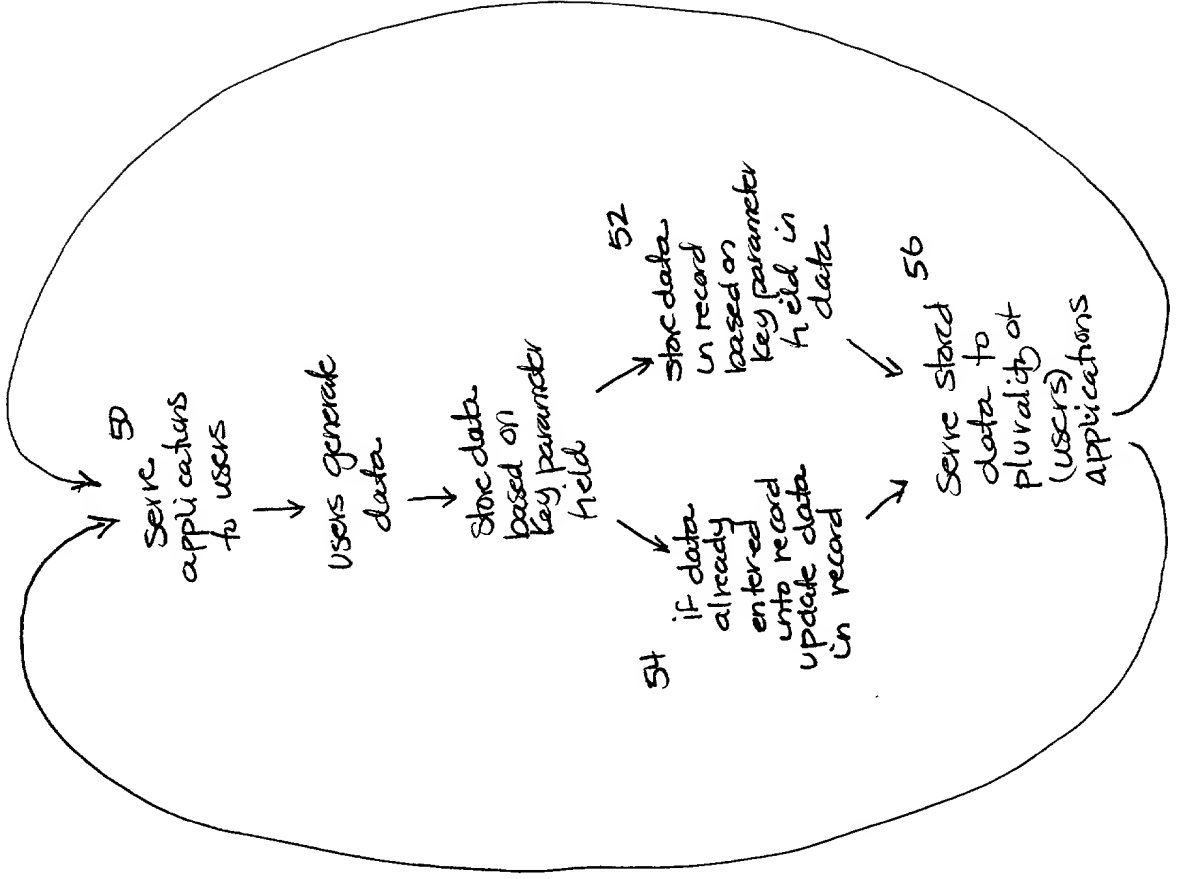 Serve 50
applications
to users
users generate
data
store data
based on
key parameter
field
54
if data
already
entered
into record
update data
in record
52
store data
in record
based on
key parameter
field in
data
Serve stored 56
data to
plurality of
(users)
applications